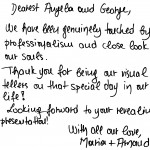 Dearest Angela and George,
We have been genuinely touched by
professionalism and close look
our souls.
Thank you for being our visual
tellers on that special day in our
life!
Looking forward to your revealing
presentation!
With all our love,
Maria + Arnaud